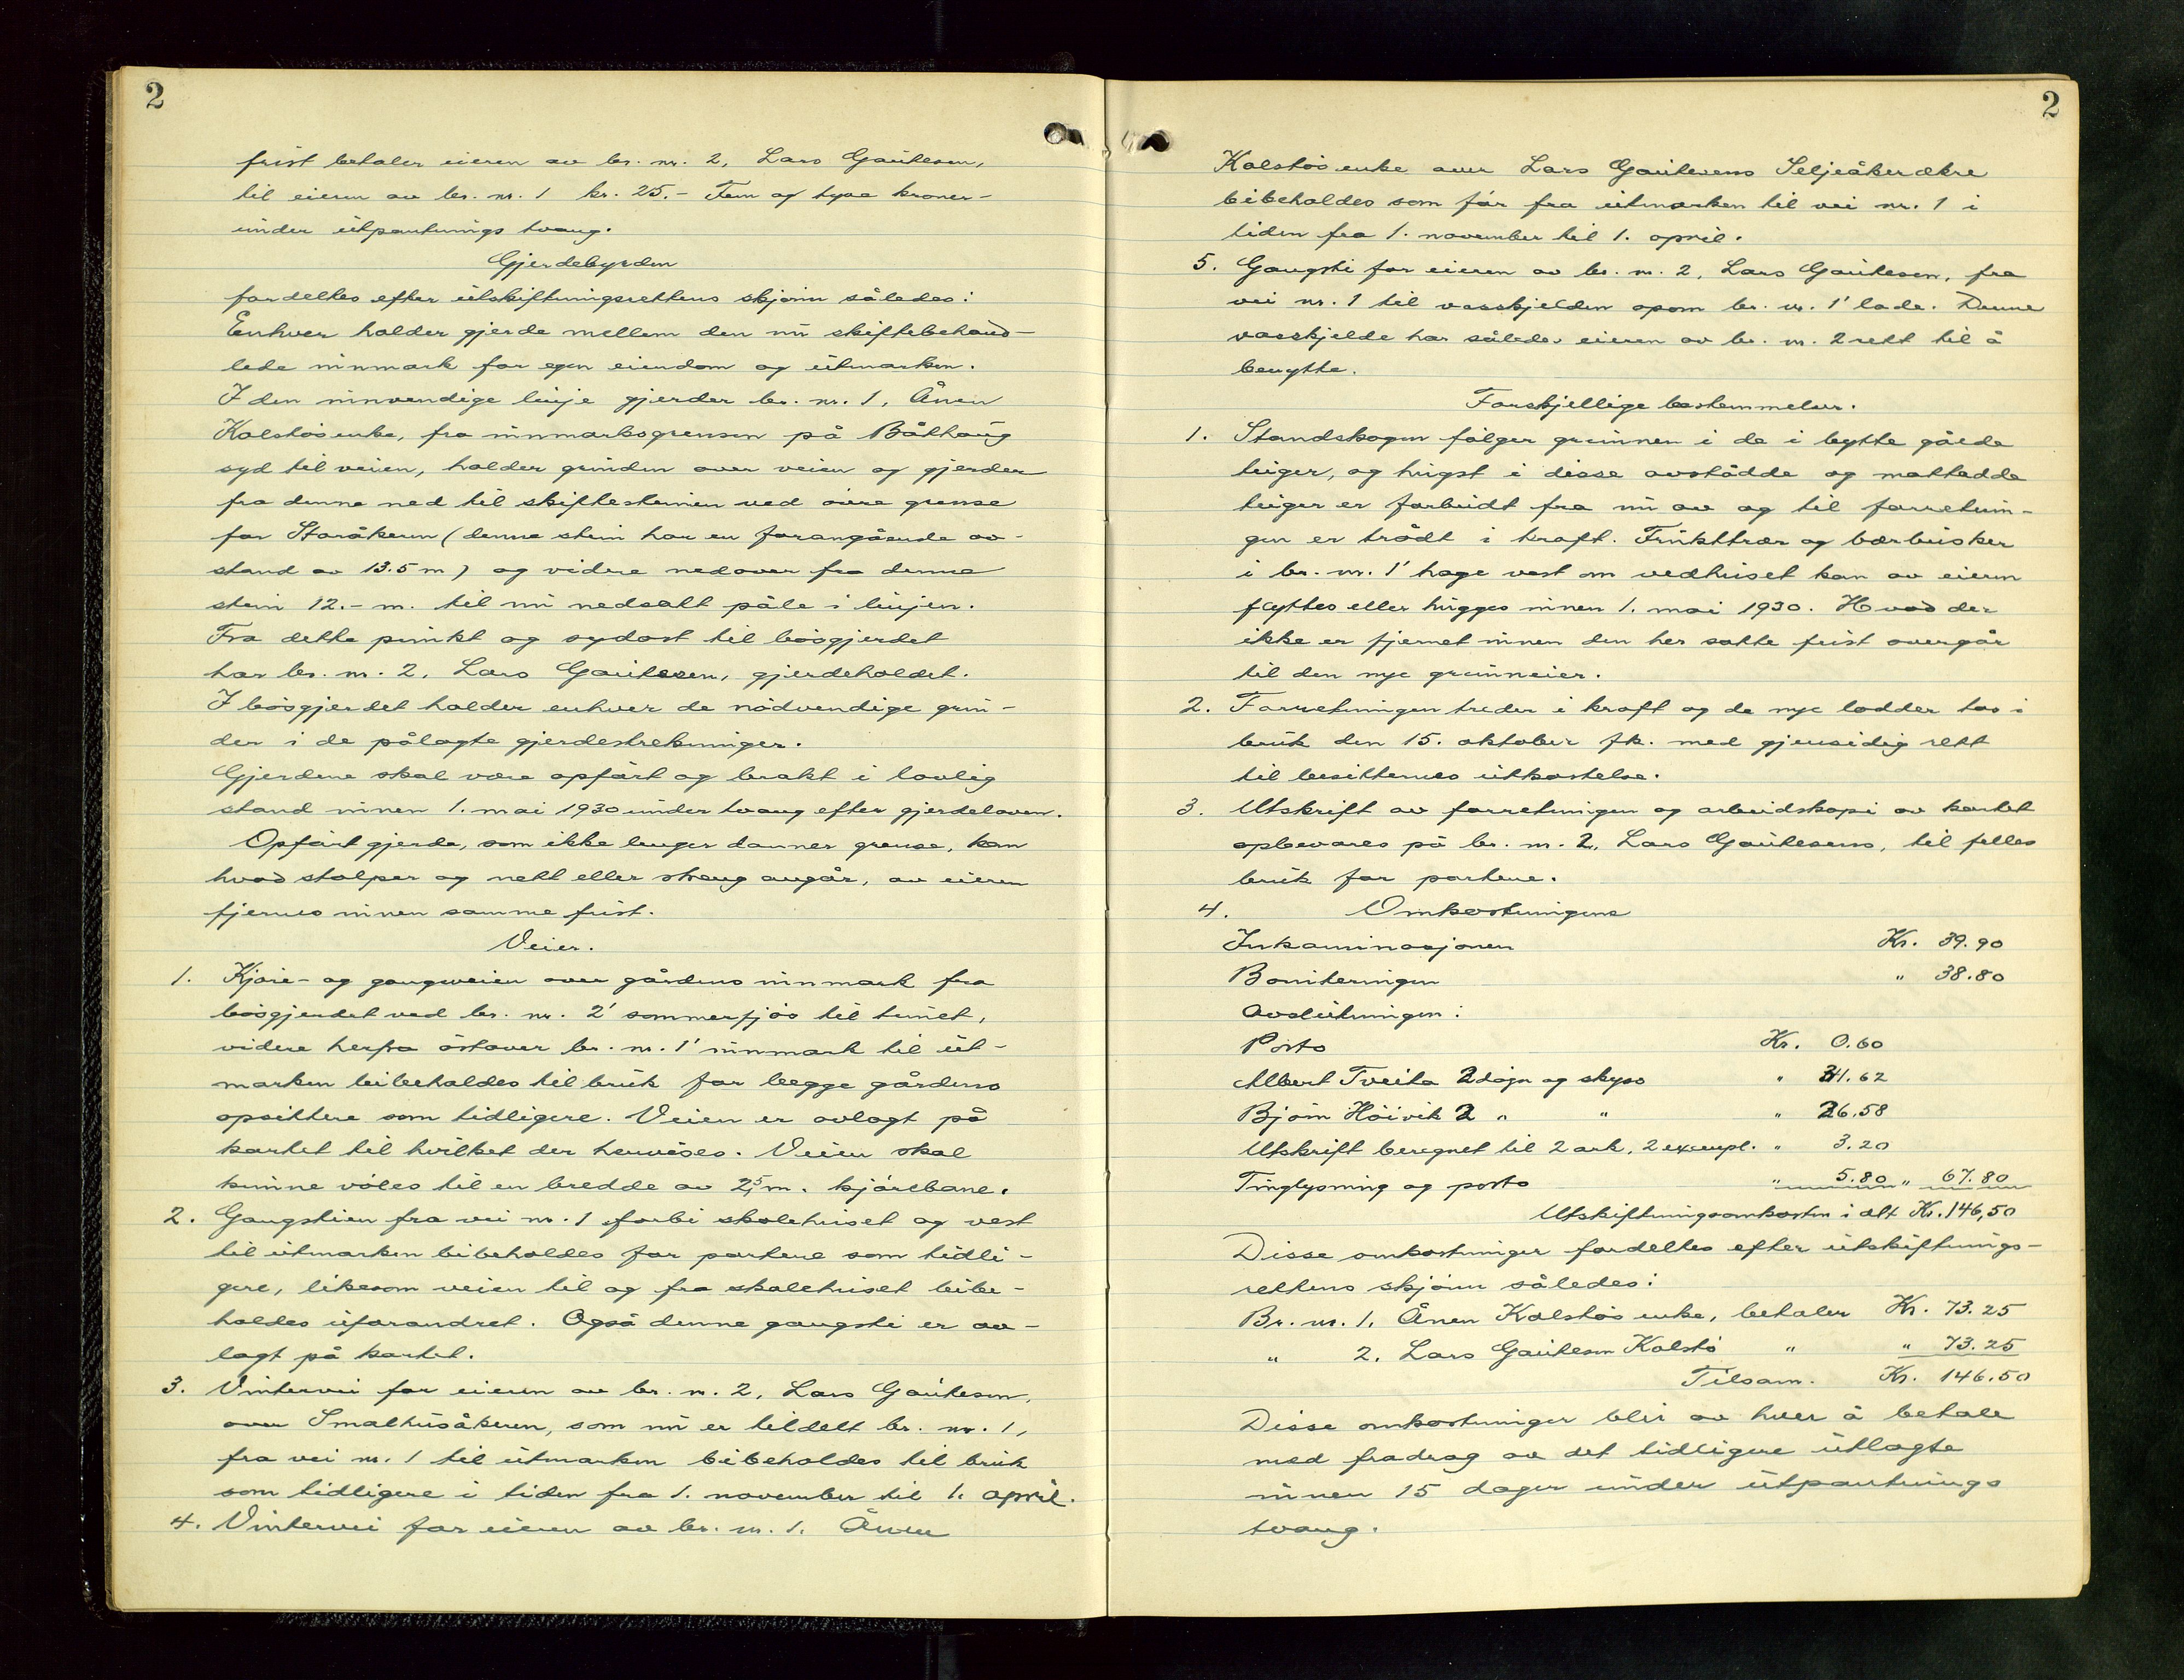 2
frist betaler eieren av br. nr. 2, Lars Gautesen,
til eieren av br. nr. 1 kr. 25.- Fem og tyve kroner-
under utpantnings tvang.
Gjerdebyrden
fordeltes efter utskiftningsrettens skjønn således:
Enhver holder gjerde mellem den nu skiftebehand-
lede innmark for egen eiendom og utmarken.
I den innvendige linje gjerder br. nr. 1, Ånen
Kolstøs enke, fra innmarksgrensen på Båthaug
syd til veien, holder grinden over veien og gjerder
fra denne ned til skiftesteinen ved øvre grense
for Storåkeren (denne stein har en forangående av-
stand av 13.5 m) og videre nedover fra denne
stein 12.- m. til nu nedsatt påle i linjen.
Fra dette punkt og sydost til bøsgjerdet
har br. nr. 2, Lars Gautesen, gjerdeholdet.
I bøsgjerdet holder enhver de nødvendige grin-
der i de pålagte gjerdestrekninger.
Gjerdene skal være opført og brakt i lovlig
stand innen 1. mai 1930 under tvang efter gjerdeloven.
Opført gjerde, som ikke lenger danner grense, kan
hvad stolper og nett eller streng angår, av eieren
fjernes innen samme frist.
Veier.
1. Kjøre- og gangveien over gårdens innmark fra
bøsgjerdet ved br. nr. 2' sommerfjøs til tunet,
videre herfra østover br. nr. 1' innmark til ut-
marken beibeholdes til bruk for begge gårdens
opsittere som tidligere. Veien er avlagt på
kartet til hvilket der henvises. Veien skal
kunne vøles til en bredde av 2,5 m. kjørebane.
2. Gangstien fra vei nr. 1 forbi skolehuset og vest
til utmarken bibeholdes for partene som tidli-
gere, likesom veien til og fra skolehuset beibe-
holdes uforandret. Også denne gangsti er av-
lagt på kartet.
3. Vintervei for eieren av br. nr. 2, Lars Gautesen,
over Smalhusåkeren, som nu er tildelt br. nr. 1,
fra vei nr. 1 til utmarken bibeholdes til bruk
som tidligere i tiden fra 1. november til 1. april.
4. Vintervei for eieren av br. nr. 1. Ånen
2
Kolstøs enke over Lars Gautesens Seljeåkerekre
bibeholdes som før fra utmarken til vei nr. 1 i
tiden fra 1. november til 1. april.
5. Gangsti for eieren av br. nr. 2, Lars Gautesen, fra
vei nr. 1 til vasskjelden opom br. nr. 1' lade. Denne
vasskjelde har således eieren av br. nr. 2 rett til å
benytte.
Forskjellige bestemmelser.
1. Standskogen følger grunnen i de i bytte gåede
teiger, og hugst i disse avstådde og mottadde
teiger er forbudt fra nu av og til forretnin-
gen er trådt i kraft. Frukttrær og bærbusker
i br. nr. 1' hage vest om vedhuset kan av eieren
flyttes eller hugges innen 1. mai 1930. Hvad der
ikke er fjernet innen den her satte frist overgår
til den nye grunneier.
2. Forretningen treder i kraft og de nye lodder tas i
bruk den 15. oktober fk. med gjensidig rett
til besitternes utkastelse.
3. Utskrift av forretningen og arbeidskopi av kartet
opbevares på br. nr. 2, Lars Gautesens, til felles
bruk for partene.
4. Omkostningene
Inkaminasjonen Kr. 39.90
Boniteringen " 38.80
Avslutningen:
Porto Kr. 0.60
Albert Tveita 2 døgn og skyss " 31.62
Bjørn Høivik 2 " " " 26.58
Utskrift beregnet til 2 ark, 2 exempl. " 3.20
Tinglysning og porto " 5.80 " 67.80
Utskiftningsomkostn i alt Kr. 146,50
Disse omkostninger fordeltes efter utskiftnings-
rettens skjønn således:
Br. nr. 1. Ånen Kolstøs enke, betaler Kr. 73.25
" 2. Lars Gautesen Kolstø " " 73.25
Tilsam. Kr. 146.50
Disse omkostninger blir av hver å betale
med fradrag av det tidligere utlagte
innen 15 dager under utpantnings
tvang.